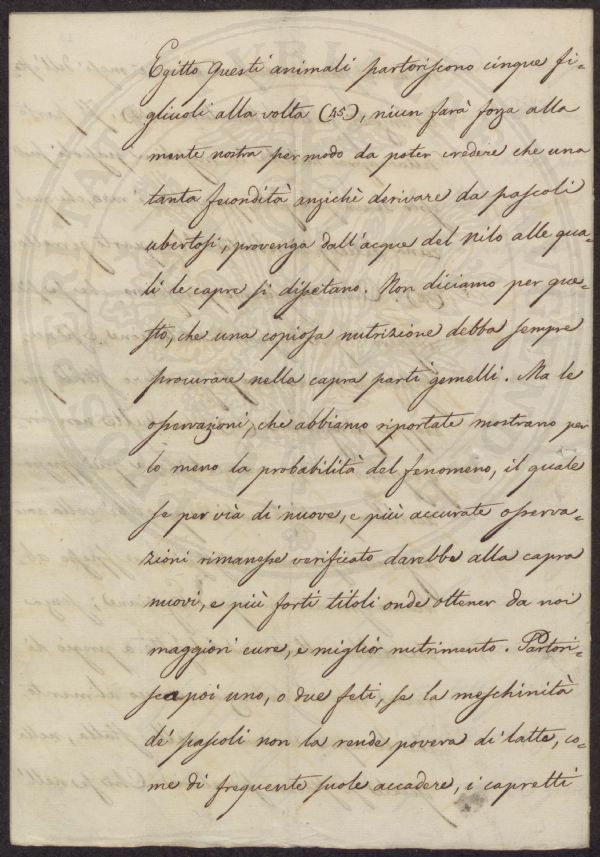 Egitto questi animali partoriscono cinque fi=
gliuoli alla volta (45), niun farà forza alla
mente nostra per modo da poter credere che una
tanta fecondità anzichè derivare da pascoli
ubertosi, provenga dall'acque del Nilo alle qua=
li le capre si disetano. Non diciamo per que=
sto, che una copiosa nutrizione debba sempre
procurare nella capra parti gemelli. Ma le
osservazioni, che abbiamo riportate mostrano per
lo meno la probabilità del fenomeno, il quale
se per via di nuove, e più accurate osserva=
zioni rimanesse verificato darebbe alla capra
nuovi, e più forti titoli onde ottener da noi
maggiori cure, e miglior nutrimento. Partori=
sca poi uno, o due feti, se la meschinità
de' pascoli non la rende povera di latte, co=
me di frequente suole accadere, i capretti